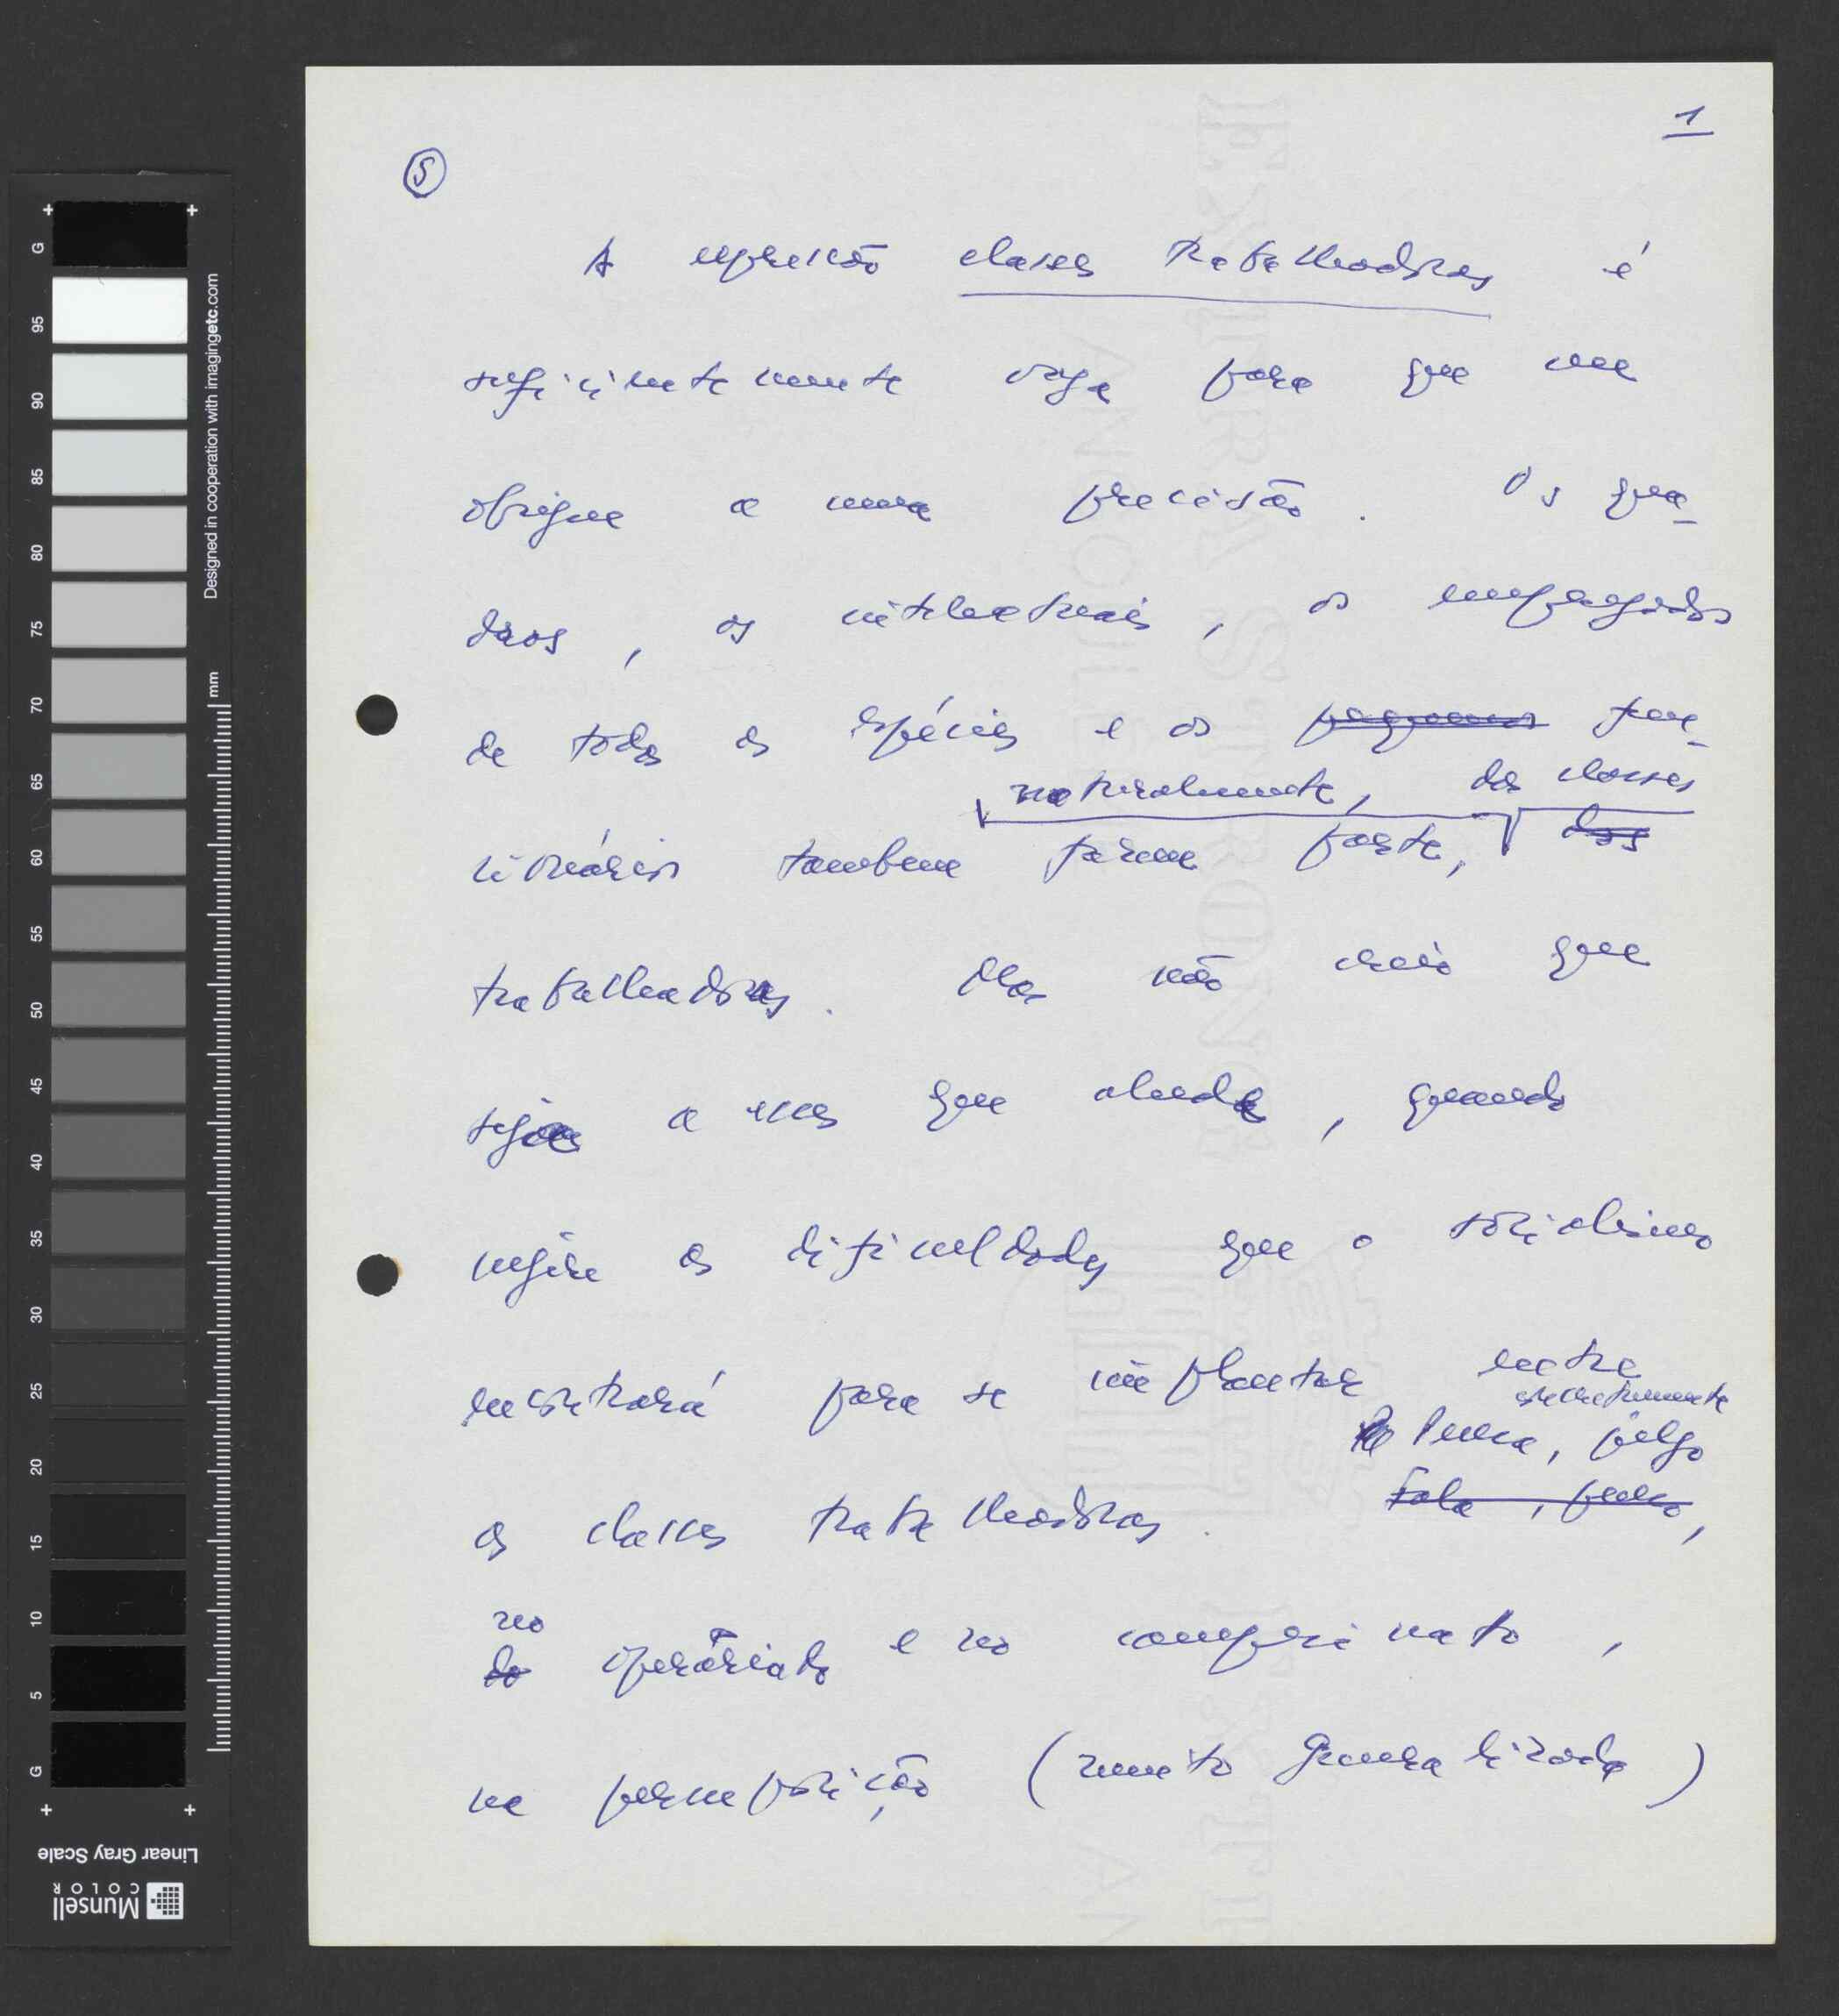 1
5
A expressão classes trabalhadoras é
suficientemente vaga para que me
obrigue a uma precisão. Os qua-
dros, os intelectuais, os empregados
de todas as espécies e os pequenos fun-
naturalmente, das classes
cionários tambem fazem parte, das
trabalhadoras. Mas não creio que
seja a essas que aluda, quando
refere as dificuldades que o socialismo
encontrará para se implantar entre
estritamente
Pensa, julgo
as classes trabalhadoras. Fala, penso,
no
do operariado e no campesinato,
na pressuposição (muito generalizada)
Designed in cooperation with imagingetc.com
mm
G
95
90
85
80
75
70
65
60
55
50
45
40
35
30
25
20
15
10
5
G
Linear Gray Scale
Munsell
COLOR